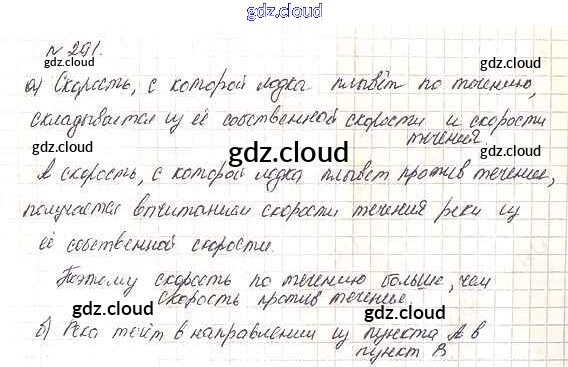 gdz.cloud
№ 291.
gdz.cloud gdz.cloud
а) Скорость, с которой лодка плывёт по течению,
складывается из её собственной скорости и скорости
течения.
gdz.cloud
gdz.cloud
А скорость, с которой лодка плывёт против течение,
получается вычитанием скорости течения реки из
её собственной скорости.
Поэтому скорость по течению больше, чем
скорость против течение.
gdz.cloud gdz.cloud
б) Река течёт в направлении из пункта А в
пункт В